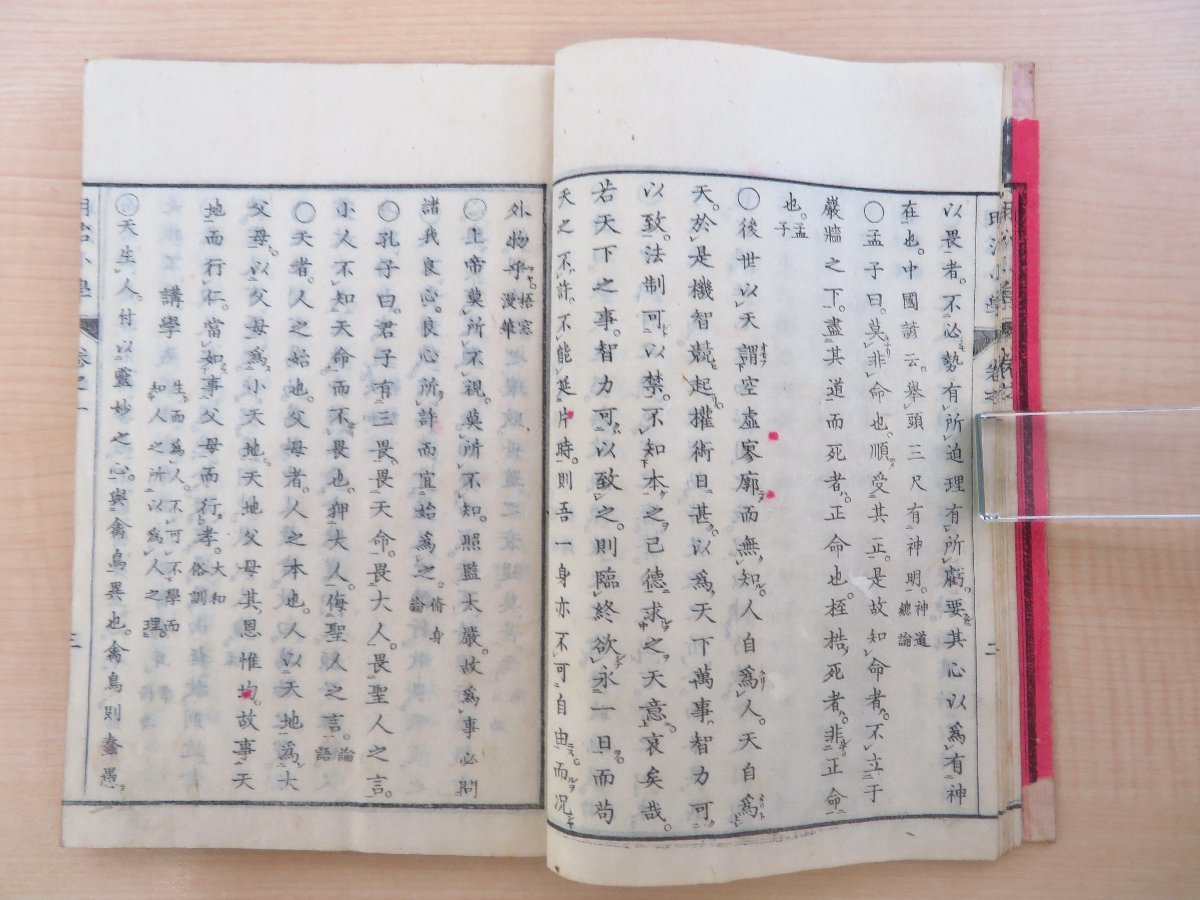 以畏者。不必勢有所迫理有所虧。要其心以爲有神
在也。中國諺云。擧頭三尺有神明。神道總論
〇孟子曰。莫非命也。順受其正。是故知命者。不立于
巖牆之下。盡其道而死者。正命也。桎梏死者。非正命
也。孟子
〇後世以天謂空虛寥廓而無知。人自爲人。天自爲
天。於是機智競起。權術日甚。以爲天下萬事。智力可
以致。法制可以禁。不知本之己德。求之天意。哀哉。
若天下之事。智力可以致之。則臨終欲永一日。而苟
天之不許。不能延片時。則吾一身亦不可自由。而况
外物乎。悟窓漫筆
〇上帝莫所不視。莫所不知。照監太嚴。故爲事必問
諸我良心。良心所許而宜始爲之。脩身論
〇孔子曰。君子有三畏。畏天命。畏大人。畏聖人之言。
小人不知天命而不畏也。狎大人。侮聖人之言。論語
〇天者。人之始也。父母者。人之本也。人以天地爲大
父母。以父母爲小天地。天地父母其恩惟均。故事天
地而行仁。當如事父母而行孝。大和俗訓
講學 生而爲人。不可不學而知人之所以爲人之理。
〇天生人。付以靈妙之心。與禽鳥異也。禽鳥則蠢愚。
卷之一
三
二